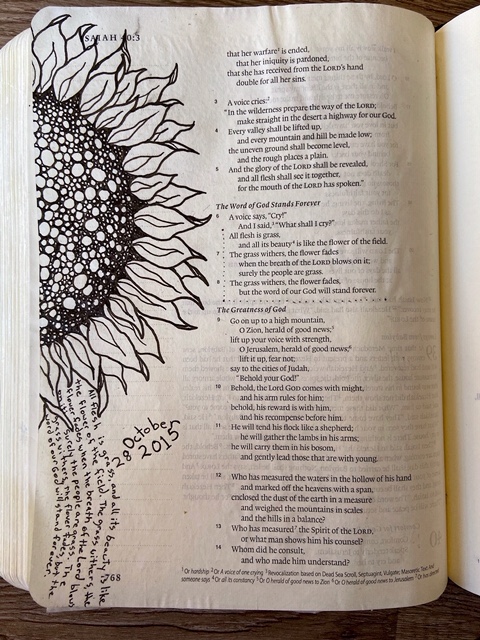 SAIAH 40:3
that her warfare¹ is ended,
that her iniquity is pardoned,
that she has received from the LORD's hand
double for all her sins.
3 A voice cries:²
"In the wilderness prepare the way of the LORD;
make straight in the desert a highway for our God.
4 Every valley shall be lifted up,
and every mountain and hill be made low;
the uneven ground shall become level,
and the rough places a plain.
5 And the glory of the LORD shall be revealed,
and all flesh shall see it together,
for the mouth of the LORD has spoken."
The Word of God Stands Forever
6 A voice says, "Cry!"
And I said,³ "What shall I cry?"
All flesh is grass,
and all its beauty⁴ is like the flower of the field.
7 The grass withers, the flower fades
when the breath of the LORD blows on it;
surely the people are grass.
8 The grass withers, the flower fades,
but the word of our God will stand forever.
The Greatness of God
9 Go on up to a high mountain,
O Zion, herald of good news;⁵
lift up your voice with strength,
O Jerusalem, herald of good news;⁶
lift it up, fear not;
say to the cities of Judah,
"Behold your God!"
10 Behold, the Lord GOD comes with might,
and his arm rules for him;
behold, his reward is with him,
and his recompense before him.
11 He will tend his flock like a shepherd;
he will gather the lambs in his arms;
he will carry them in his bosom,
and gently lead those that are with young.
12 Who has measured the waters in the hollow of his hand
and marked off the heavens with a span,
enclosed the dust of the earth in a measure
and weighed the mountains in scales
and the hills in a balance?
13 Who has measured⁷ the Spirit of the LORD,
or what man shows him his counsel?
14 Whom did he consult,
and who made him understand?
¹ Or hardship ² Or A voice of one crying ³ Revocalization based on Dead Sea Scroll, Septuagint, Vulgate; Masoretic Text And
someone says ⁴ Or all its constancy ⁵ Or O herald of good news to Zion ⁶ Or O herald of good news to Jerusalem ⁷ Or has directed
28 October
2015
All flesh is grass, and all its beauty is like
the flower of the field. The grass withers, the
flower fades when the breath of the Lord blows
on it; surely the people are grass. The
grass withers, the flower fades, but the
word of our God will stand forever.
768